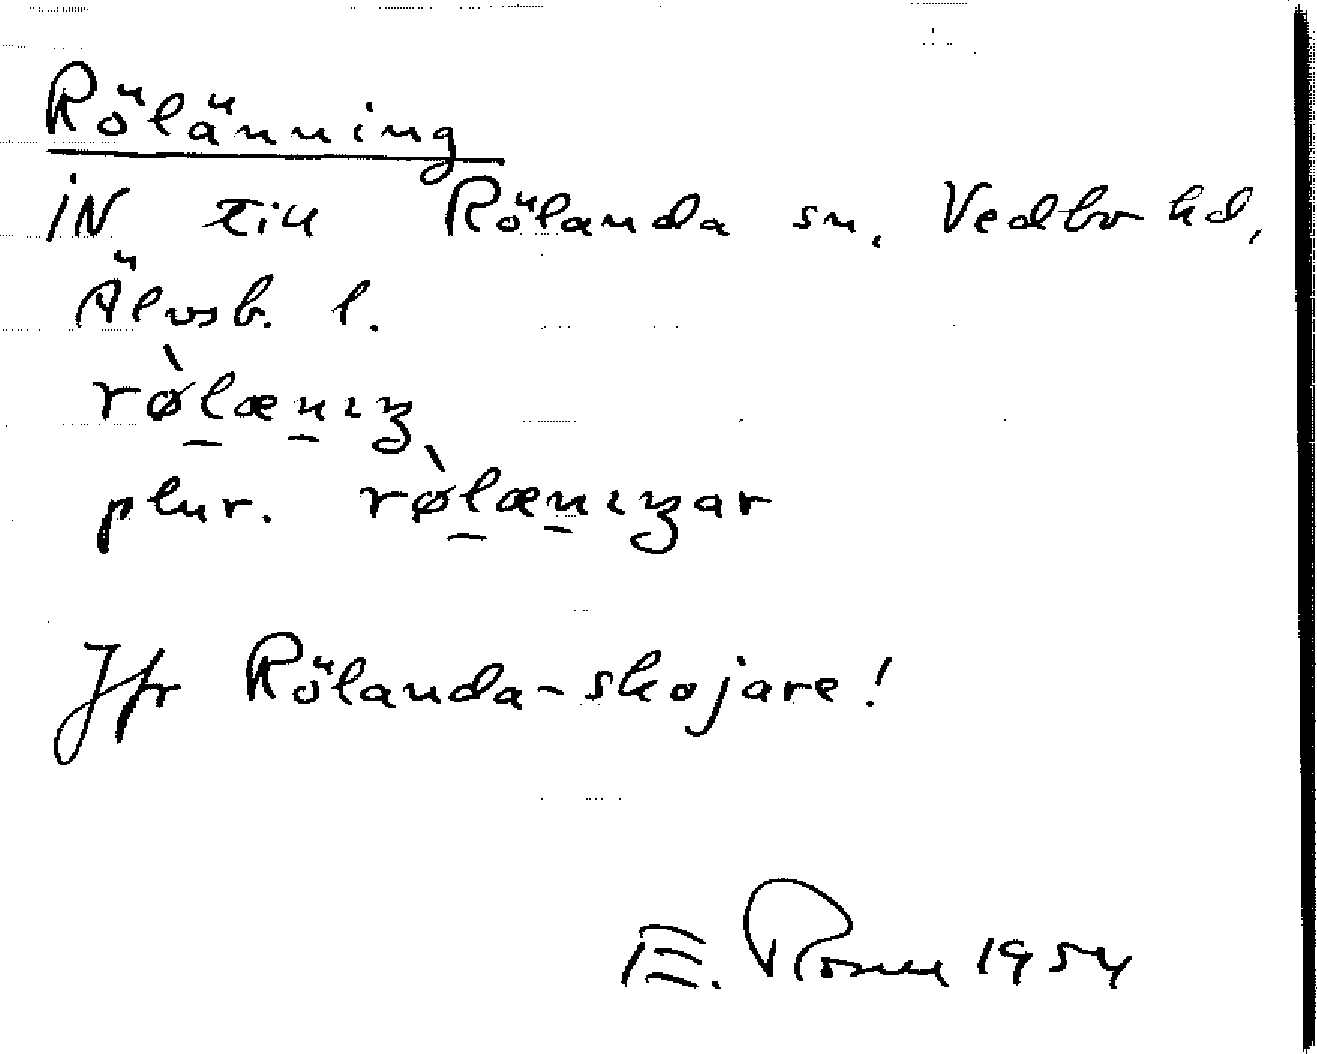 Rölänning
iN till Rölanda sn, Vedbo hd,
Älvsb. l.
rø̀lænıŋ
plur. rø̀lænıŋar
Jfr Rölanda-skojare!
E. 1954